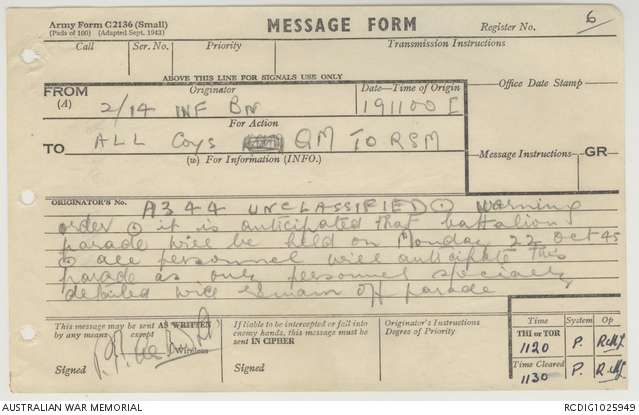 Army Form C2136 (Small)
(Pads of 100) (Adapted Sept. 1943)
MESSAGE FORM
Register No. 6
Call Ser. No. Priority Transmission Instructions
ABOVE THIS LINE FOR SIGNALS USE ONLY
FROM Originator Date—Time of Origin Office Date Stamp
(A) 2/14 INF BN 191100 I
For Action
TO ALL Coys QM TO RSM
(W) For Information (INFO.) Message Instructions GR
ORIGINATOR'S No. A344 UNCLASSIFIED ⊙ Warning
order ⊙ it is anticipated that battalion
parade will be held on Monday 22 Oct 45
⊙ all personnel will anticipate this
parade as only personnel specially
detailed will remain off parade
This message may be sent AS WRITTEN
by any means except Wireless
Signed
If liable to be intercepted or fall into
enemy hands, this message must be
sent IN CIPHER
Signed
Originator's Instructions
Degree of Priority
Time System Op
THI or TOR
1120 P.
Time Cleared
1130 P.
AUSTRALIAN WAR MEMORIAL RCDIG1025949